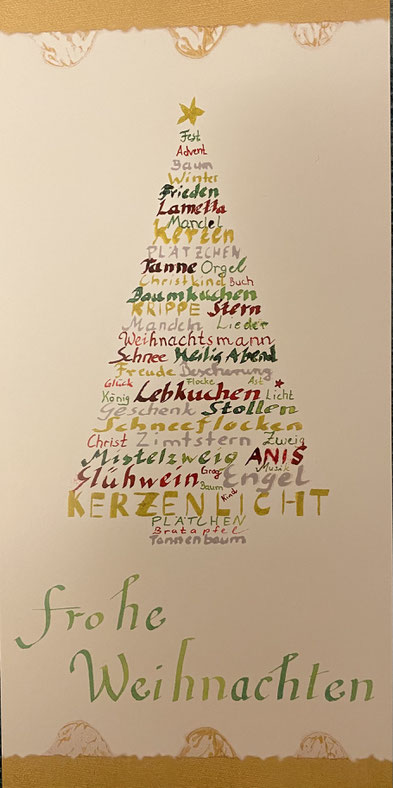 Fest
Advent
Baum
Winter
Frieden
Lametta
Mandel
Kerzen
PLÄTZCHEN
Tanne Orgel
Christkind Buch
Baumkuchen
KRIPPE Stern
Mandeln Lieder
Weihnachtsmann
Schnee Heilig Abend
Freude Bescherung
Glück Flocke Ast
König Lebkuchen Licht
Geschenk Stollen
Schneeflocken
Christ Zimtstern Zweig
Mistelzweig ANIS
Glühwein Grog Musik Engel
Baum Kind
KERZENLICHT
PLÄTCHEN
Bratapfel
Tannenbaum
frohe
Weihnachten